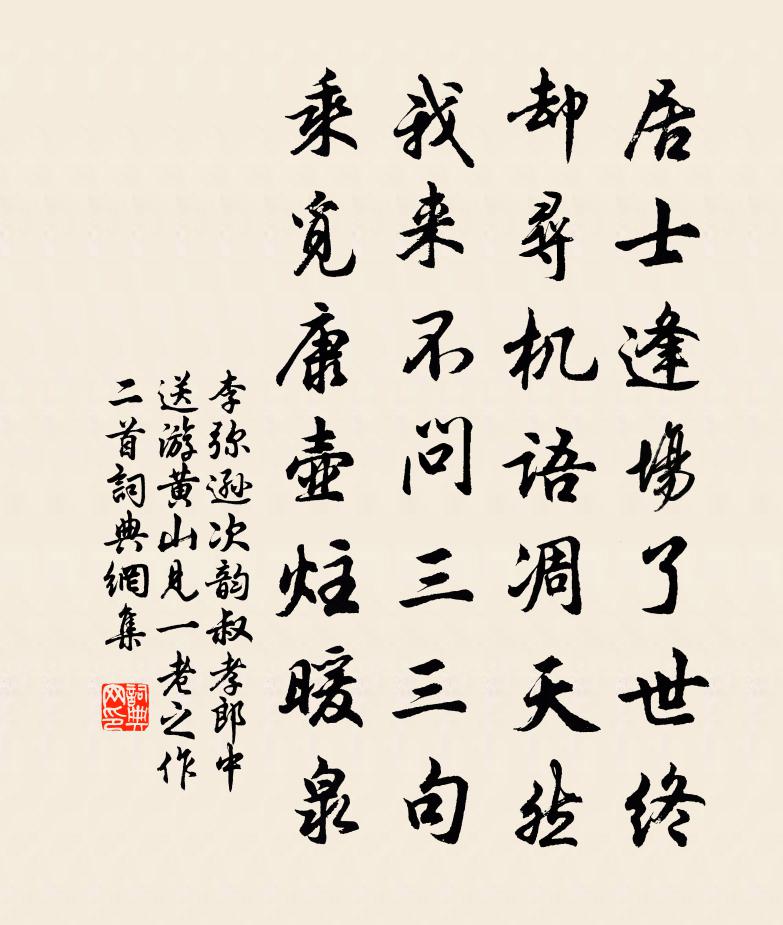 居士逢場了世終
却尋机語凋天然
我来不問三三句
乘覓康壺炷暖泉
李弥遜次韵叔孝郎中
送游黄山見一老之作
二首詞典網集
詞典
网印